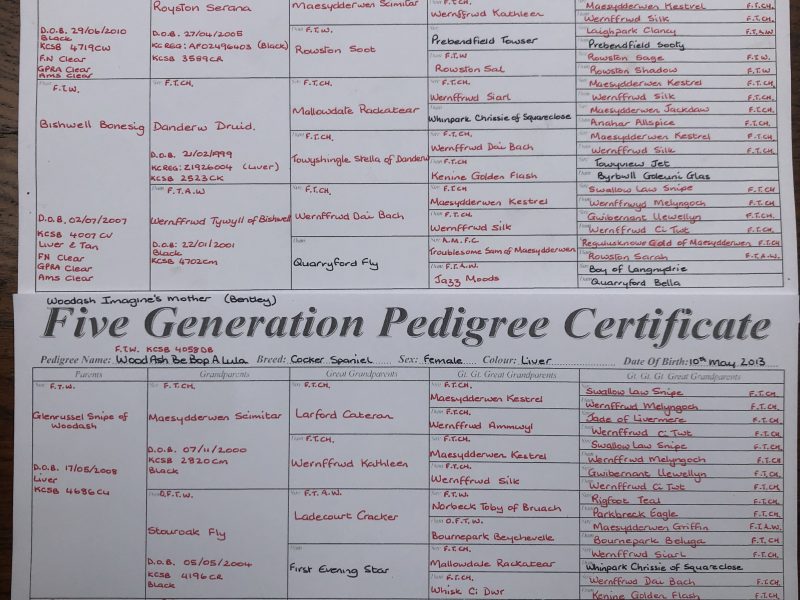 Royston Serana
Maesydderwen Scimitar
Wernffrwd Kathleen
Maesydderwen Kestrel F.T.CH.
Wernffrwd Silk F.T.CH.
D.O.B. 29/06/2010
Black
KCSB 4719CW
FN Clear
GPRA Clear
Ams Clear
D.O.B. 27/04/2005
KCREG: AF02496403 (Black)
KCSB 3589CR
F.T.W.
Rowston Soot
Prebendfield Towser
Laighpark Clancy F.T.A.W
Prebendfield Sooty
F.T.W
Rowston Sal
Rowston Sage F.T.W.
Rowston Shadow F.T.W
F.T.W.
Bishwell Bonesig
F.T.CH.
Danderw Druid.
F.T.CH.
Mallowdale Rackatear
F.T.CH.
Wernffrwd Siarl
Maesydderwen Kestrel F.T.CH.
Wernffrwd Silk F.T.CH.
Whinpark Chrissie of Squareclose
Maesydderwen Jackdaw F.T.CH.
Anahar Allspice F.T.CH.
D.O.B. 21/02/1999
KCREG: Z1926004 (Liver)
KCSB 2523CK
F.T.CH.
Towyshingle Stella of Danderw
F.T.CH.
Wernffrwd Dai Bach
Maesydderwen Kestrel F.T.CH.
Wernffrwd Silk F.T.CH.
F.T.CH
Kenine Golden Flash
Towyview Jet
Byrbwll Goleuni Glas
D.O.B. 02/07/2007
KCSB 4007CV
Liver & Tan
FN Clear
GPRA Clear
Ams Clear
F.T.A.W
Wernffrwd Tywyll of Bishwell
D.O.B. 22/01/2001
Black
KCSB 4702CM
F.T.CH.
Wernffrwd Dai Bach
F.T.CH.
Maesydderwen Kestrel
Swallow Law Snipe F.T.CH.
Wernffrwyd Melyngoch F.T.CH.
F.T.CH.
Wernffrwd Silk
Gwibernant Llewellyn F.T.CH.
Wernffrwd Ci Twt F.T.CH.
Quarryford Fly
A.M. F.C
Troublesome Sam of Maesydderwen
Regulusknowe Gold of Maesydderwen F.T.CH
Rowston Sarah F.T.A.W.
F.T.A.W.
Jazz Moods
Boy of Langnydrie
Quarryford Bella
Woodash Imagine's Mother (Bentley)
Five Generation Pedigree Certificate
F.T.W. KCSB 4058DB
Pedigree Name: WoodAsh Be Bop A Lula Breed: Cocker Spaniel Sex: Female Colour: Liver Date Of Birth: 10th May 2013
Parents Grandparents Great Grandparents Gt. Gt. Great Grandparents Gt. Gt. Gt. Great Grandparents
F.T.W.
Glenrussel Snipe of
Woodash
D.O.B. 17/05/2008
Liver
KCSB 4686CU
F.T.CH.
Maesydderwen Scimitar
D.O.B. 07/11/2000
KCSB 2820CM
Black
F.T.CH.
Larford Cateran
F.T.CH.
Maesydderwen Kestrel
Swallow Law Snipe F.T.CH.
Wernffrwd Melyngoch F.T.CH.
F.T.CH.
Wernffrwd Ammwyl
Jade of Livermere F.T.CH.
Wernffrwd Ci Twt F.T.CH.
F.T.CH.
Wernffrwd Kathleen
F.T.CH.
Maesydderwen Kestrel
Swallow Law Snipe F.T.CH.
Wernffrwd Melyngoch F.T.CH.
F.T.CH.
Wernffrwd Silk
Gwibernant Llewellyn F.T.CH.
Wernffrwd Ci Twt F.T.CH.
O.F.T.W.
Stouroak Fly
D.O.B. 05/05/2004
KCSB 4196CR
Black
F.T.A.W.
Ladecourt Cracker
F.T.W.
Norbeck Toby of Bruach
Rigfoot Teal F.T.CH.
Parkbreck Eagle F.T.CH.
O.F.T.W.
Bournepark Beychevelle
Maesydderwen Griffin F.T.A.W.
Bournepark Beluga F.T.CH
First Evening Star
F.T.CH.
Mallowdale Rackatear
Wernffrwd Siarl F.T.CH.
Whinpark Chrissie of Squareclose
F.T.CH.
Whisk Ci Dwr
Wernffrwd Dai Bach F.T.CH.
Kenine Golden Flash F.T.CH.